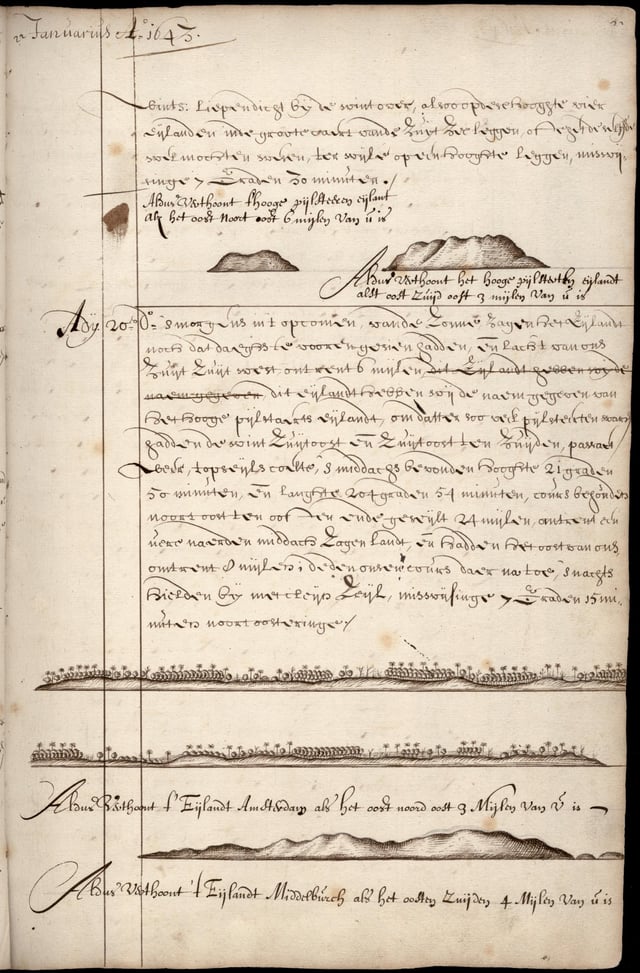 in Januarius A.° 1643.
wints: diependicht by de wint over, alsoo op de hooghte vier
eijlanden inde groote caert vande Zuijt Zee leggen, of dezelde
wel mochten wesen, ter wijle op een hooghte leggen, miswij-
singe 7 Graden 30 minuten ./
Aldus Verthoont t hooge pijlsteerten eijlant
als het oost noort oost 6 mijlen van ū is
Aldus Verthoont het hooge pijlsteerten eijlandt
alst oost Zuijd oost 3 mijlen van ū is
Adij 20en D°: s'morgens int opcomen, vande Zonne Zagen het Eijlandt
noch dat daeghs te vooren gesien hadden, en lach van ons
Zuijt Zuijt west ontrent 6 mijlen, dit Eijlandt hebben wij de
naem gegeven, dit eijlandt hebben wij de naem gegeven van
het hooge pijlstaerts eijlandt, om datter soo veel pijlsteerten waren
hadden de wint Zuijtoost en Zuijtoost ten Zuijden, passaet
weer, topseijls coelte, s middachs bevonden hooghte 21 graden
50 minuten, en langhte 204 graden 54 minuten, cours behouden
noort oost ten oosten ende geseijlt 24 mijlen, ontrent een
uere naerden middach Zagen landt, en hadden het oost van ons
ontrent 8 mijlen; deden onsen cours daer na toe, s'nachts
hielden by met cleijn Zeijl, miswijsinge 7 Graden 15 mi-
nuten noort oosteringe ./
Aldus Verthoont t' Eijlandt Amsterdam als het oost noord oost 3 Mijlen van ū is
Aldus Verthoont 't Eijlandt Middelburch als het oosten Zuijden 4 Mijlen van ū is